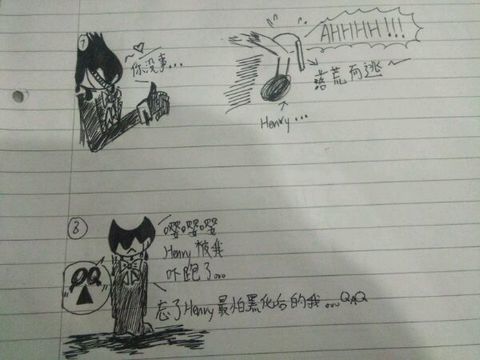 7
你没事...
AHHHH!!!
落荒而逃
Henry...
8
嘤嘤嘤
Henry 被我
吓跑了...
QQ
忘了Henry最怕黑化后的我...QAQ